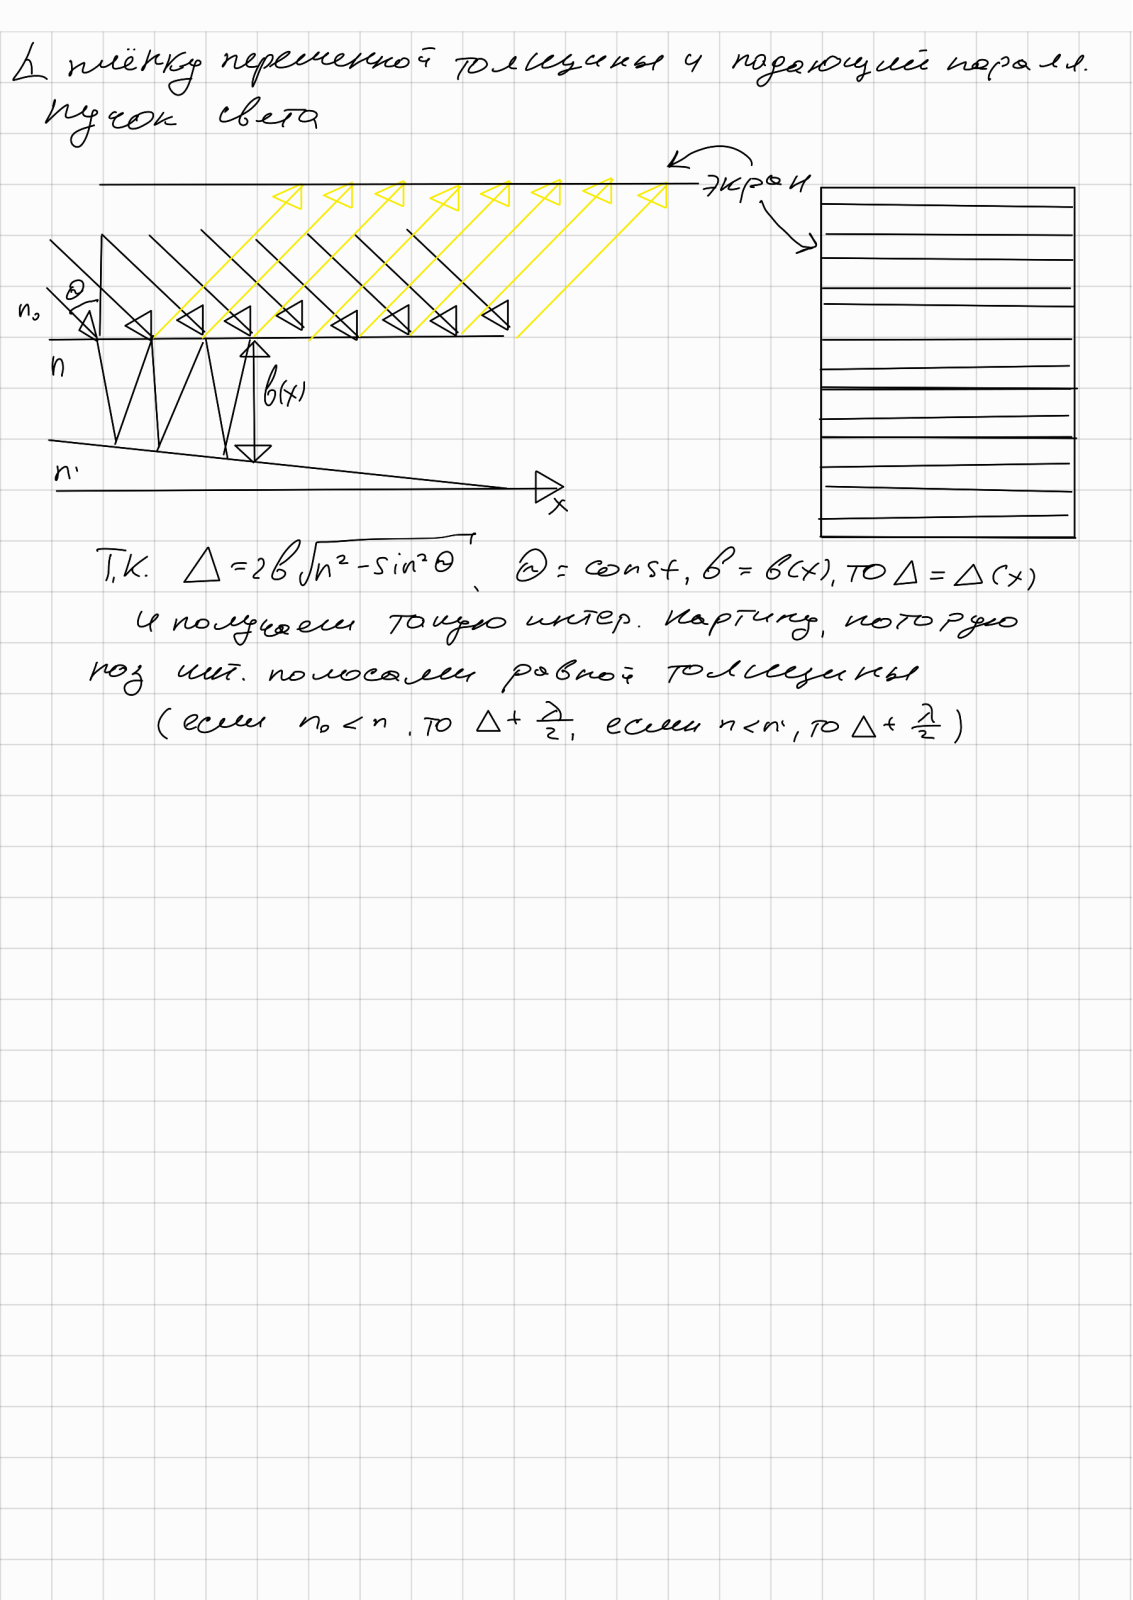 ∠ плёнку переменной толщины и падающий паралл.
пучок света
экран
θ
n₀
n
b(x)
n'
x
Т.К. Δ = 2b√(n² - sin²θ), θ = const, b = b(x), то Δ = Δ(x)
и получаем такую интер. картину, которую
наз инт. полосами равной толщины
(если n₀ < n, то Δ + λ/2, если n < n', то Δ + λ/2)